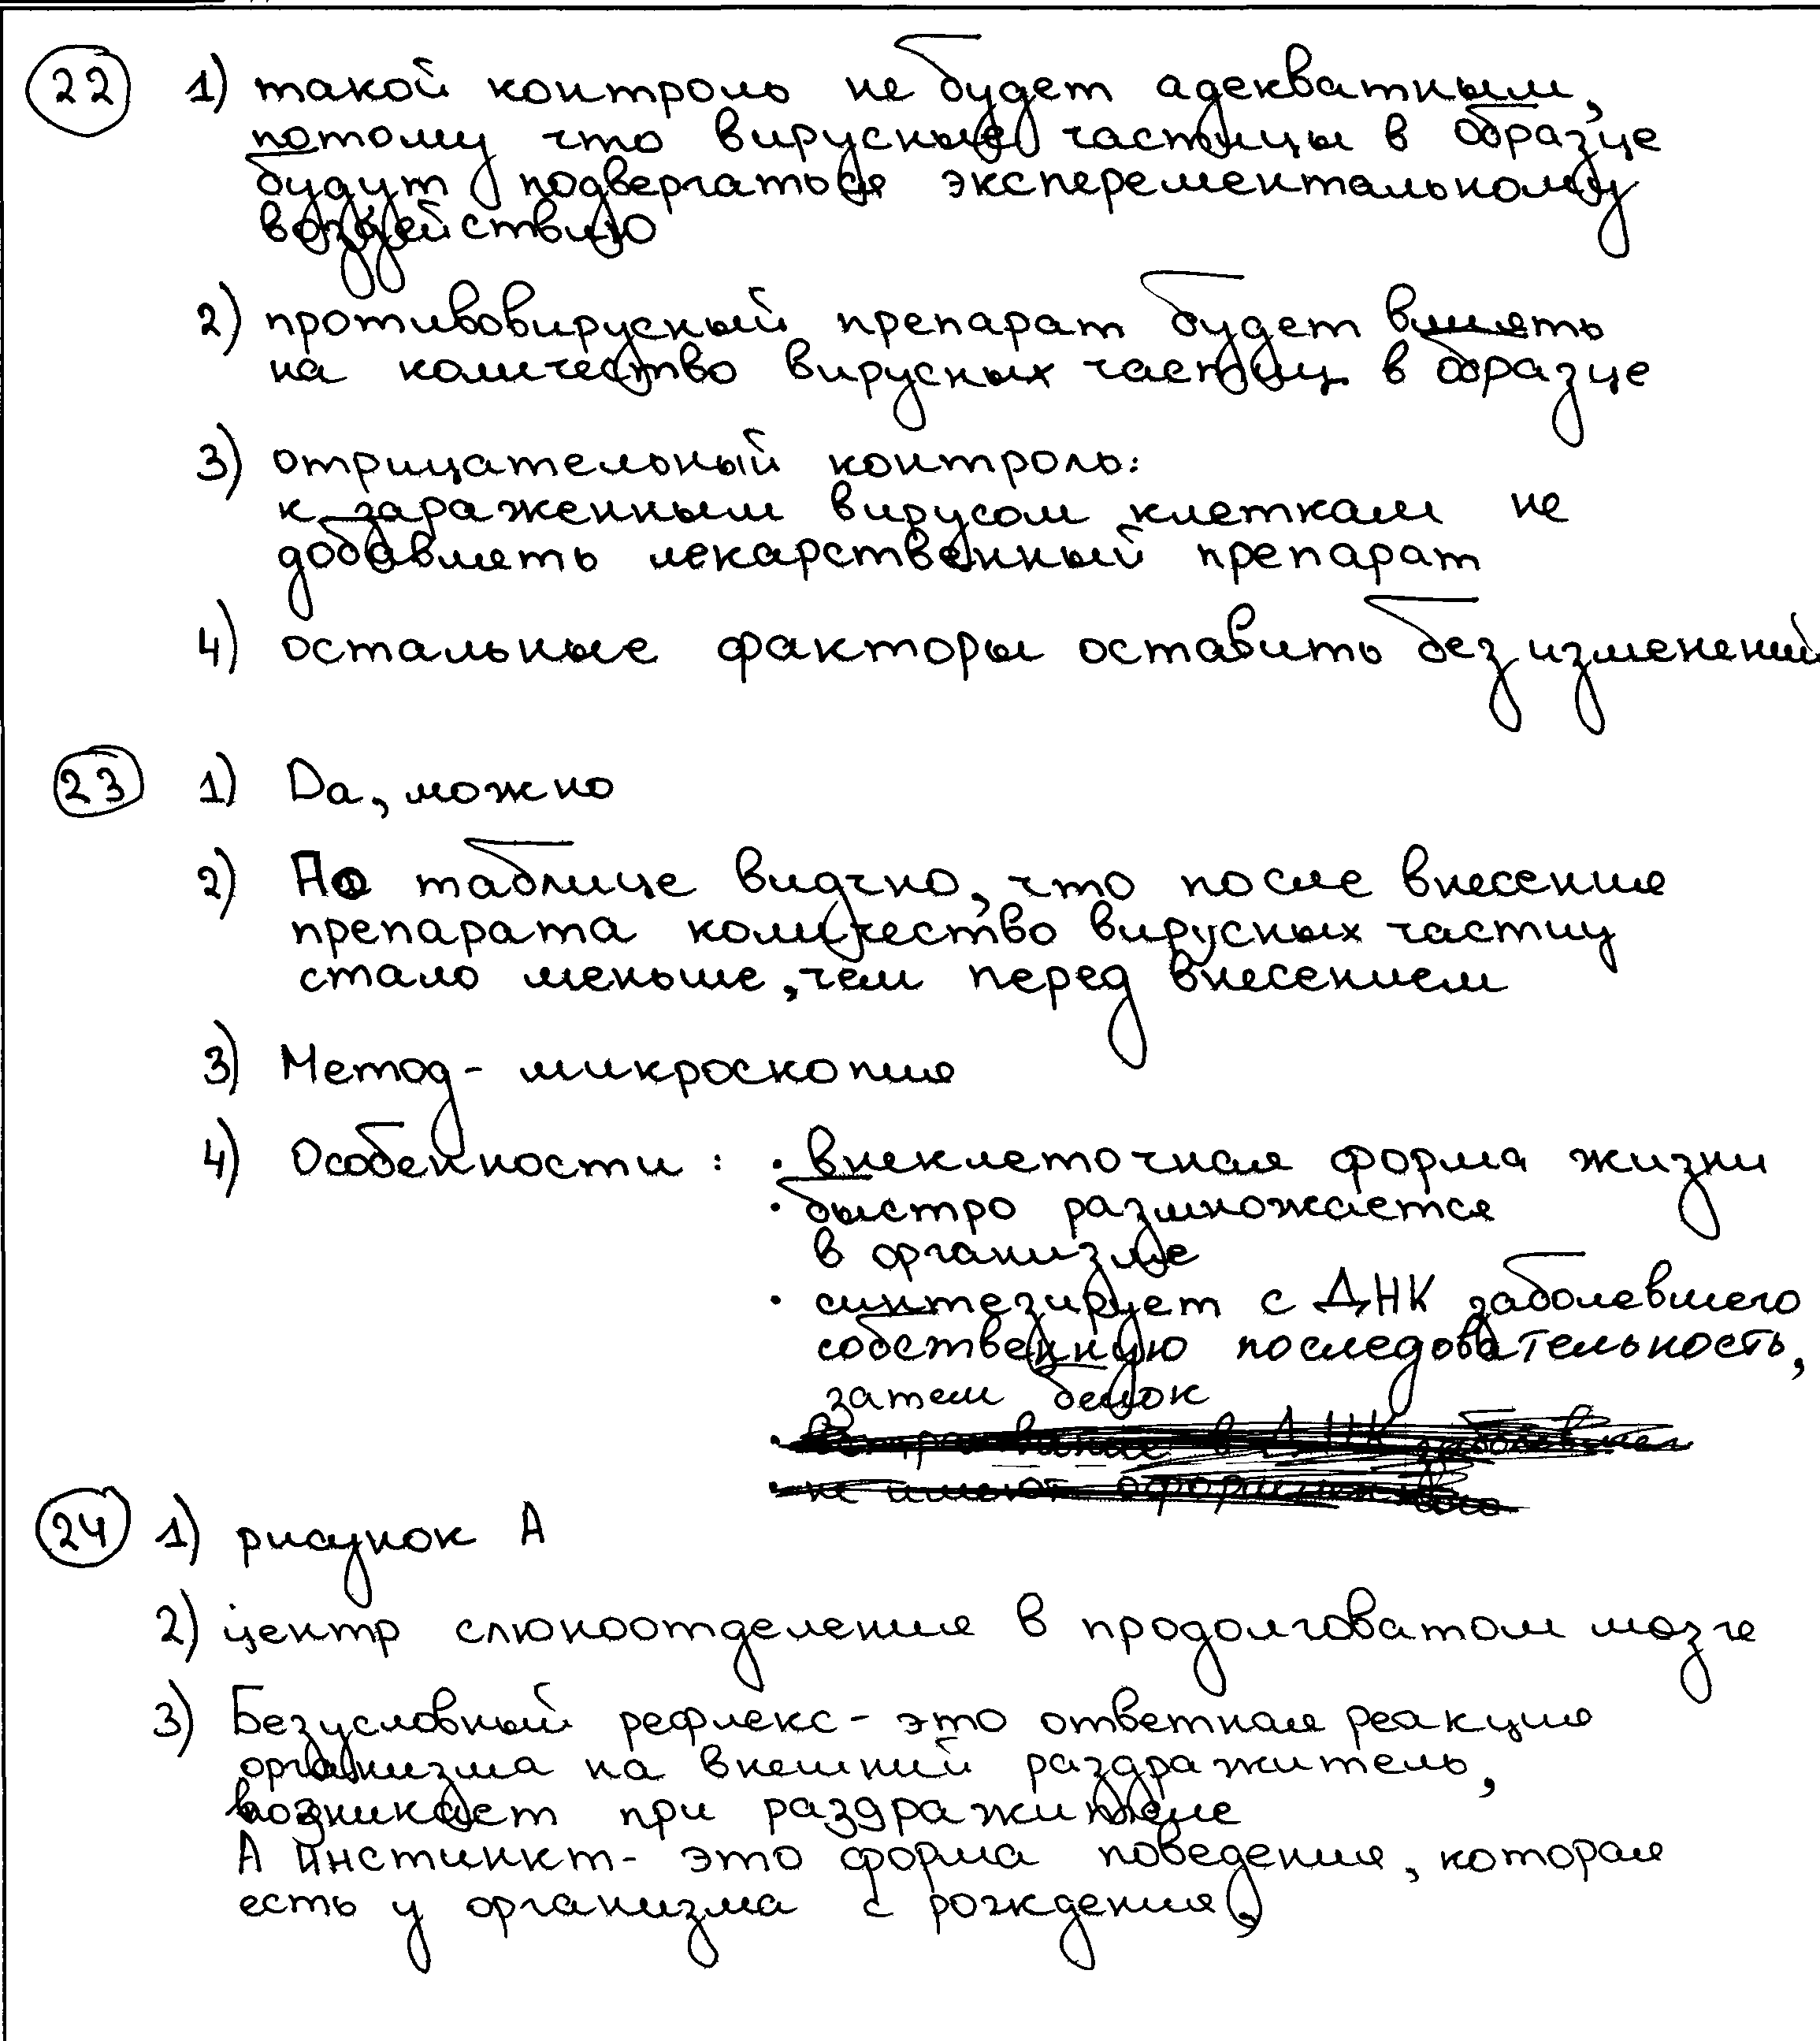 22 1) такой контроль не будет адекватным,
потому что вирусные частицы в образце
будут подвергаться эксперементальному
воздействию
2) противовирусный препарат будет влиять
на количество вирусных частиц в образце
3) отрицательный контроль:
к зараженным вирусом клеткам не
добавлять лекарственный препарат
4) остальные факторы оставить без изменений
23 1) Да, можно
2) По таблице видно, что после внесения
препарата количество вирусных частиц
стало меньше, чем перед внесением
3) Метод - микроскопия
4) Особенности : • внеклеточная форма жизни
• быстро размножается
в организме
• синтезирует с ДНК заболевшего
собственную последовательность,
затем белок
24 1) рисунок А
2) центр слюноотделения в продолговатом мозге
3) Безусловный рефлекс - это ответная реакция
организма на внешний раздражитель,
возникает при раздражителе
А инстинкт - это форма поведения, которая
есть у организма с рождения,